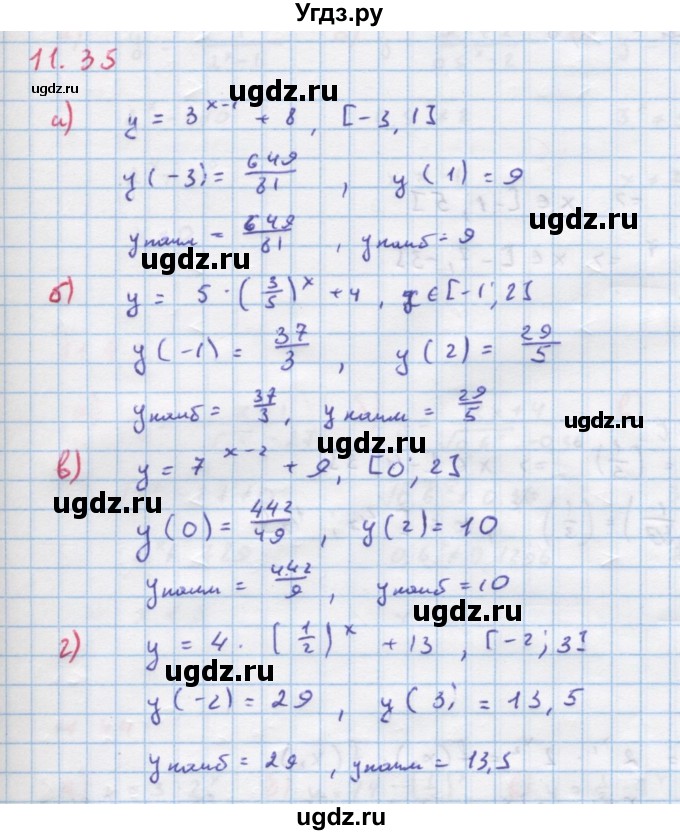 Угдз.ру
11.35
ugdz.ru
ugdz.ru
а) y = 3^(x-1) + 8, [-3, 1]
y(-3) = 649/81, y(1) = 9
ugdz.ru ugdz.ru
y наим = 649/81, y наиб = 9
ugdz.ru
б) y = 5 · (3/5)^x + 4, x ∈ [-1; 2]
y(-1) = 37/3, y(2) = 29/5
ugdz.ru ugdz.ru
y наиб = 37/3, y наим = 29/5
ugdz.ru
ugdz.ru
в) y = 7^(x-2) + 9, [0; 2]
ugdz.ru
y(0) = 442/49, y(2) = 10
ugdz.ru
y наим = 442/9, y наиб = 10
ugdz.ru
г) y = 4 · (1/2)^x + 13, [-2; 3]
ugdz.ru
y(-2) = 29, y(3) = 13,5
ugdz.ru
y наиб = 29, y наим = 13,5
ugdz.ru
ugdz.ru